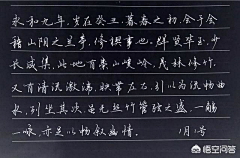 永和九年,岁在癸丑,暮春之初,会于会
稽山阴之兰亭,修禊事也。群贤毕至,少
长咸集。此地有崇山峻岭,茂林修竹,
又有清流激湍,映带左右,引以为流觞曲
水,列坐其次。虽无丝竹管弦之盛,一觞
一咏,亦足以畅叙幽情。 1月1号
悟空问答